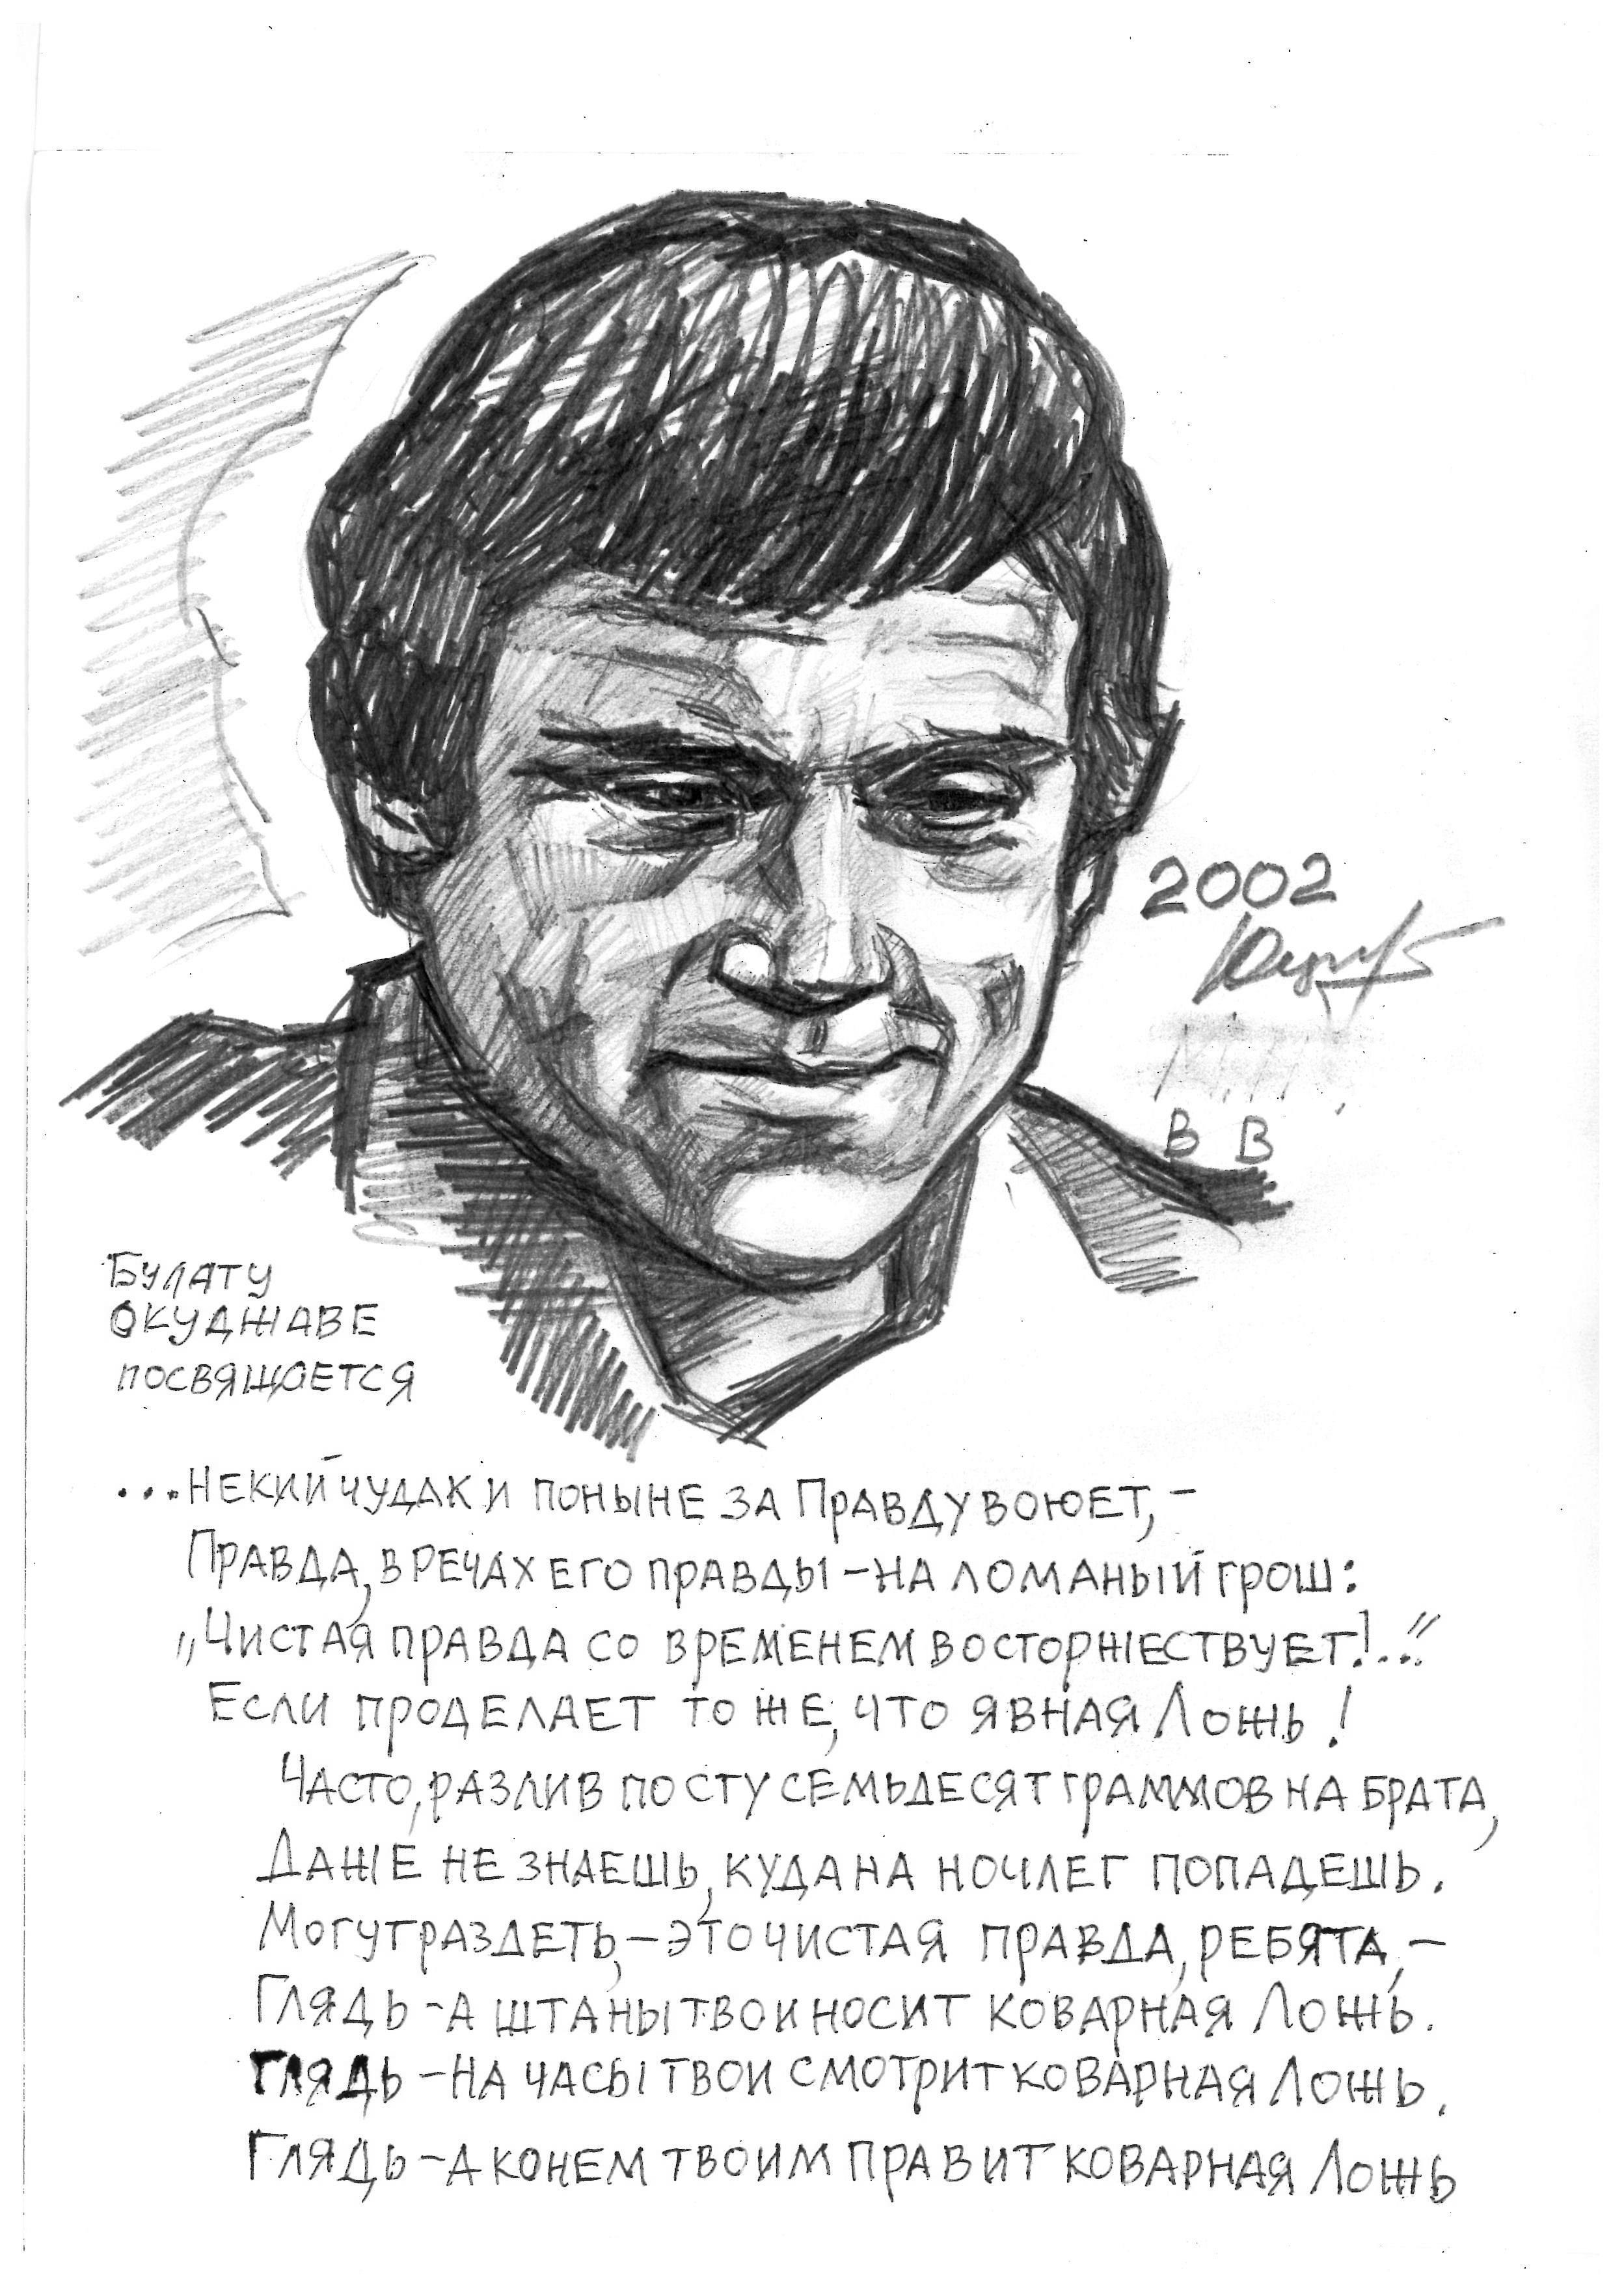 2002
В В
БУЛАТУ
ОКУДЖАВЕ
ПОСВЯЩАЕТСЯ
...НЕКИЙ ЧУДАК И ПОНЫНЕ ЗА ПРАВДУ ВОЮЕТ,-
ПРАВДА, В РЕЧАХ ЕГО ПРАВДЫ – НА ЛОМАНЫЙ ГРОШ:
„ЧИСТАЯ ПРАВДА СО ВРЕМЕНЕМ ВОСТОРЖЕСТВУЕТ!..."
ЕСЛИ ПРОДЕЛАЕТ ТО ЖЕ, ЧТО ЯВНАЯ ЛОЖЬ!
ЧАСТО, РАЗЛИВ ПО СТУ СЕМЬДЕСЯТ ГРАММОВ НА БРАТА,
ДАЖЕ НЕ ЗНАЕШЬ, КУДА НА НОЧЛЕГ ПОПАДЕШЬ.
МОГУТ РАЗДЕТЬ, – ЭТО ЧИСТАЯ ПРАВДА, РЕБЯТА, –
ГЛЯДЬ – А ШТАНЫ ТВОИ НОСИТ КОВАРНАЯ ЛОЖЬ.
ГЛЯДЬ – НА ЧАСЫ ТВОИ СМОТРИТ КОВАРНАЯ ЛОЖЬ.
ГЛЯДЬ – А КОНЕМ ТВОИМ ПРАВИТ КОВАРНАЯ ЛОЖЬ